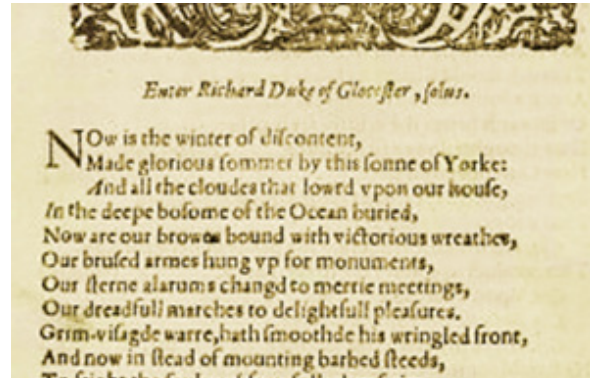 Enter Richard Duke of Glocester, ſolus.
NOw is the winter of diſcontent,
Made glorious ſommer by this ſonne of Yorke:
And all the cloudes that lowrd vpon our houſe,
In the deepe boſome of the Ocean buried,
Now are our browes bound with victorious wreathes,
Our bruſed armes hung vp for monuments,
Our ſterne alarums changd to merrie meetings,
Our dreadfull marches to delightfull pleaſures.
Grim-viſagde warre, hath ſmoothde his wringled front,
And now in ſtead of mounting barbed ſteeds,